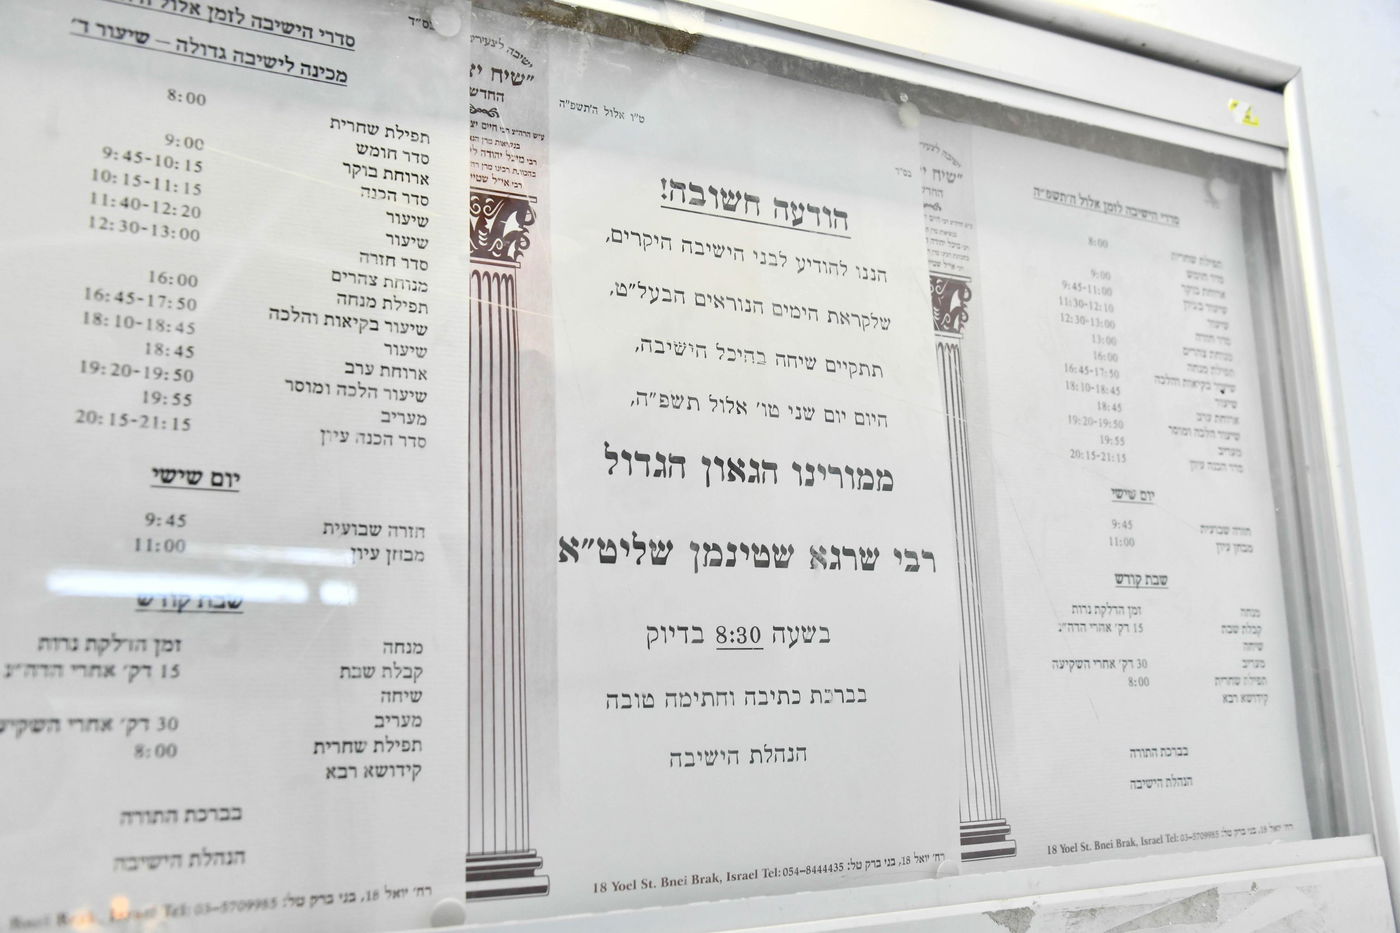 סדרי הישיבה לזמן אלול
מכינה לישיבה גדולה – שיעור ד'
תפילת שחרית 8:00
סדר חומש
ארוחת בוקר 9:00
סדר הכנה 9:45-10:15
שיעור 10:15-11:15
שיעור 11:40-12:20
סדר חזרה 12:30-13:00
מנוחת צהרים
תפילת מנחה 16:00
שיעור בקיאות והלכה 16:45-17:50
שיעור 18:10-18:45
ארוחת ערב 18:45
שיעור הלכה ומוסר 19:20-19:50
מעריב 19:55
סדר הכנה עיון 20:15-21:15
יום שישי
חזרה שבועית 9:45
מבחן עיון 11:00
שבת קודש
מנחה זמן הדלקת נרות
קבלת שבת 15 דק' אחרי הדה"נ
שיחה
מעריב 30 דק' אחרי
תפילת שחרית 8:00
קידושא רבא
בברכת התורה
הנהלת הישיבה
רח' יואל 18, בני ברק טל: Tel: 03-5709985
בס"ד
ט"ו אלול ה'תשפ"ה
הודעה חשובה!
הננו להודיע לבני הישיבה היקרים,
שלקראת הימים הנוראים הבעל"ט,
תתקיים שיחה בהיכל הישיבה,
היום יום שני טו' אלול תשפ"ה,
ממורינו הגאון הגדול
רבי שרגא שטינמן שליט"א
בשעה 8:30 בדיוק
בברכת כתיבה וחתימה טובה
הנהלת הישיבה
18 Yoel St. Bnei Brak, Israel Tel: 054-8444435 :רח' יואל 18, בני ברק טל
בס"ד
סדרי הישיבה לזמן אלול ה'תשפ"ה
תפילת שחרית 8:00
סדר חומש
ארוחת בוקר 9:00
שיעור בעיון 9:45-11:00
שיעור 11:30-12:10
סדר חזרה 12:30-13:00
מנוחת צהרים 13:00
תפילת מנחה 16:00
שיעור בקיאות והלכה 16:45-17:50
שיעור 18:10-18:45
ארוחת ערב 18:45
שיעור הלכה ומוסר 19:20-19:50
מעריב 19:55
סדר הכנה עיון 20:15-21:15
יום שישי
חזרה שבועית 9:45
מבחן עיון 11:00
שבת קודש
מנחה זמן הדלקת נרות
קבלת שבת 15 דק' אחרי הדה"נ
שיחה
מעריב 30 דק' אחרי השקיעה
תפילת שחרית 8:00
קידושא רבא
בברכת התורה
הנהלת הישיבה
18 Yoel St. Bnei Brak, Israel Tel: 03-5709985 :רח' יואל 18, בני ברק טל